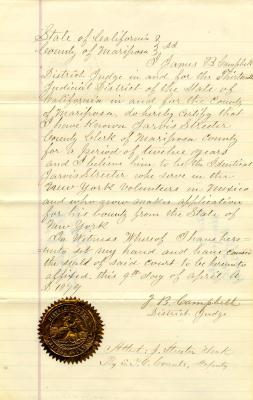 State of California
County of Mariposa } SS
I James B Campbell
District Judge in and for the Thirteenth
Judicial District of the State of
California in and for the County
of Mariposa, do hereby certify that
I have Known Jarvis Streeter
County Clerk of Mariposa County
for a period of twelve years
and I believe him to be the Identical
Jarvis Streeter who serve in the
New York Volunteers in Mexico
and who now makes application
for his bounty from the State of
New York
In Witness Whereof I have here
unto set my hand and have caused
the seal of said court to be hereunto
affixed, this 9th day of April A
D 18
J. B. Campbell
District Judge
Attest, J. Streeter Clerk
By Deputy